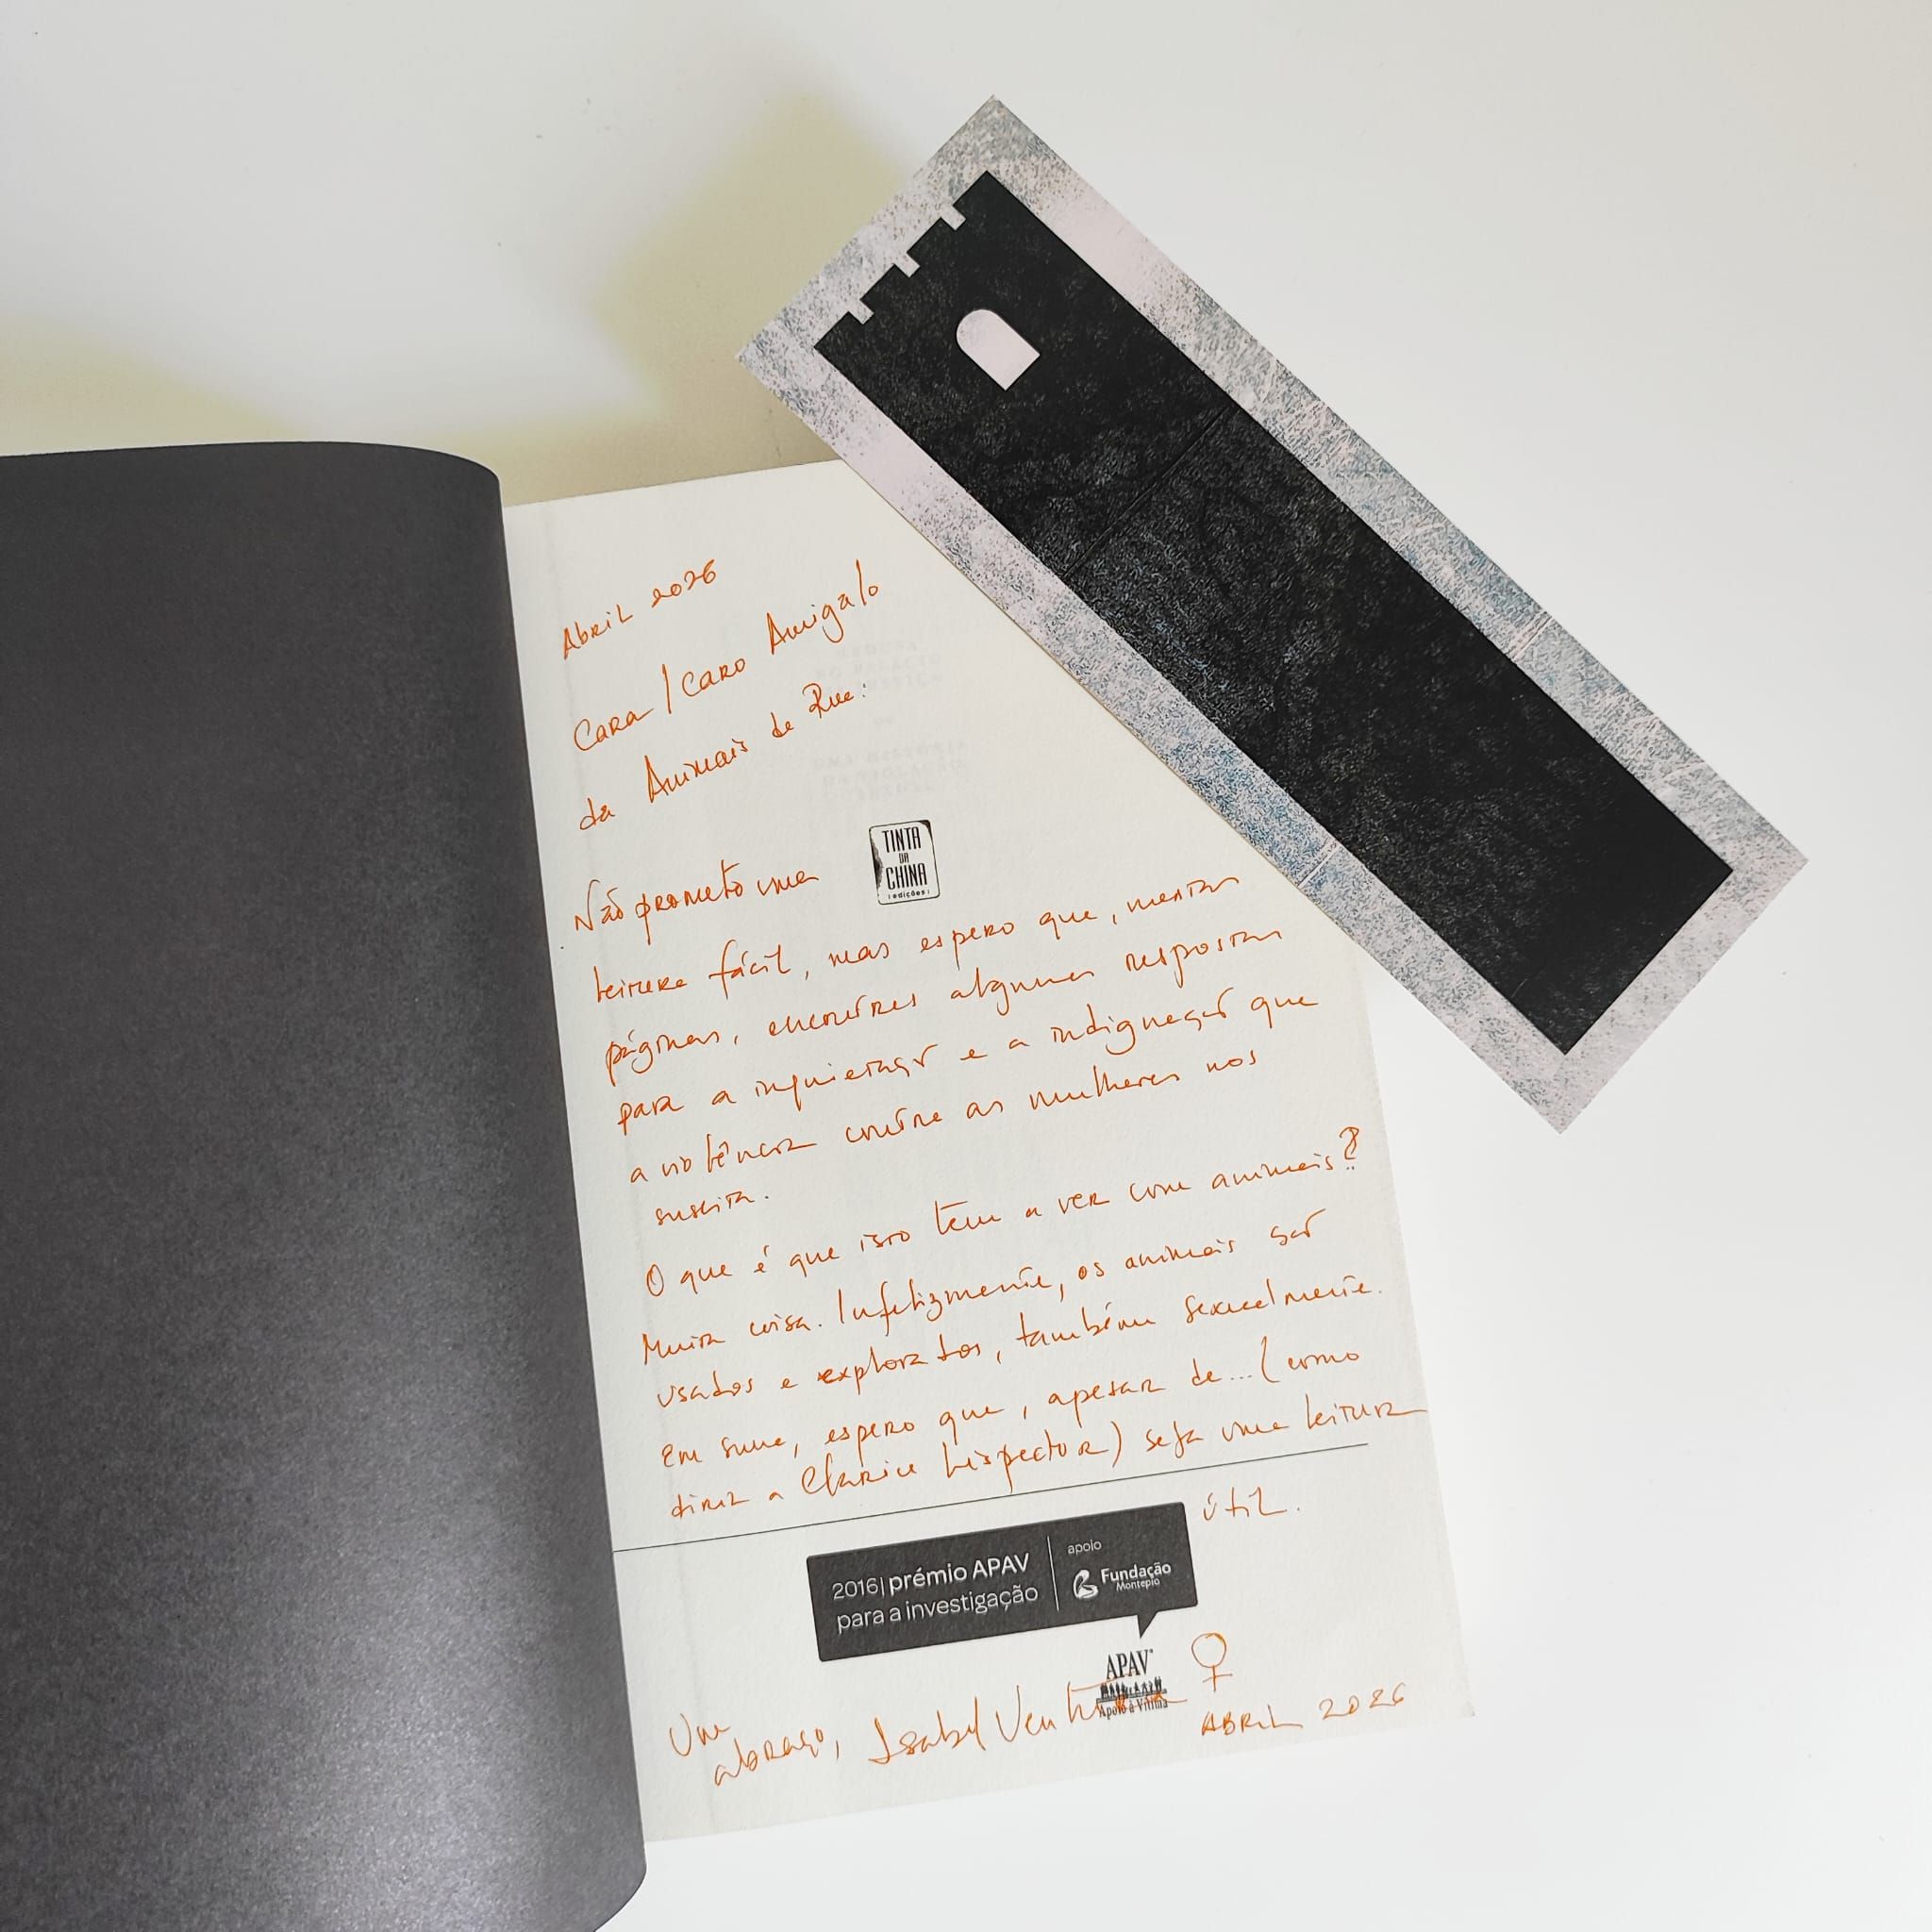 Abril 2026
Cara/Caro Amiga/o
da Animais de Rua:
TINTA
DA
CHINA
edições
Não prometo uma
leitura fácil, mas espero que, nestas
páginas, encontres algumas respostas
para a inquietação e a indignação que
a violência contra as mulheres nos
suscita.
O que é que isso tem a ver com animais?
Muita coisa. Infelizmente, os animais são
usados e explorados, também sexualmente.
Em suma, espero que, apesar de... (como
diria a Clarice Lispector) seja uma leitura
útil.
2016| prémio APAV
para a investigação
apoio
Fundação
Montepio
APAV®
Apoio à Vítima
Um
abraço, Isabel Ventura ♀
ABRIL 2026